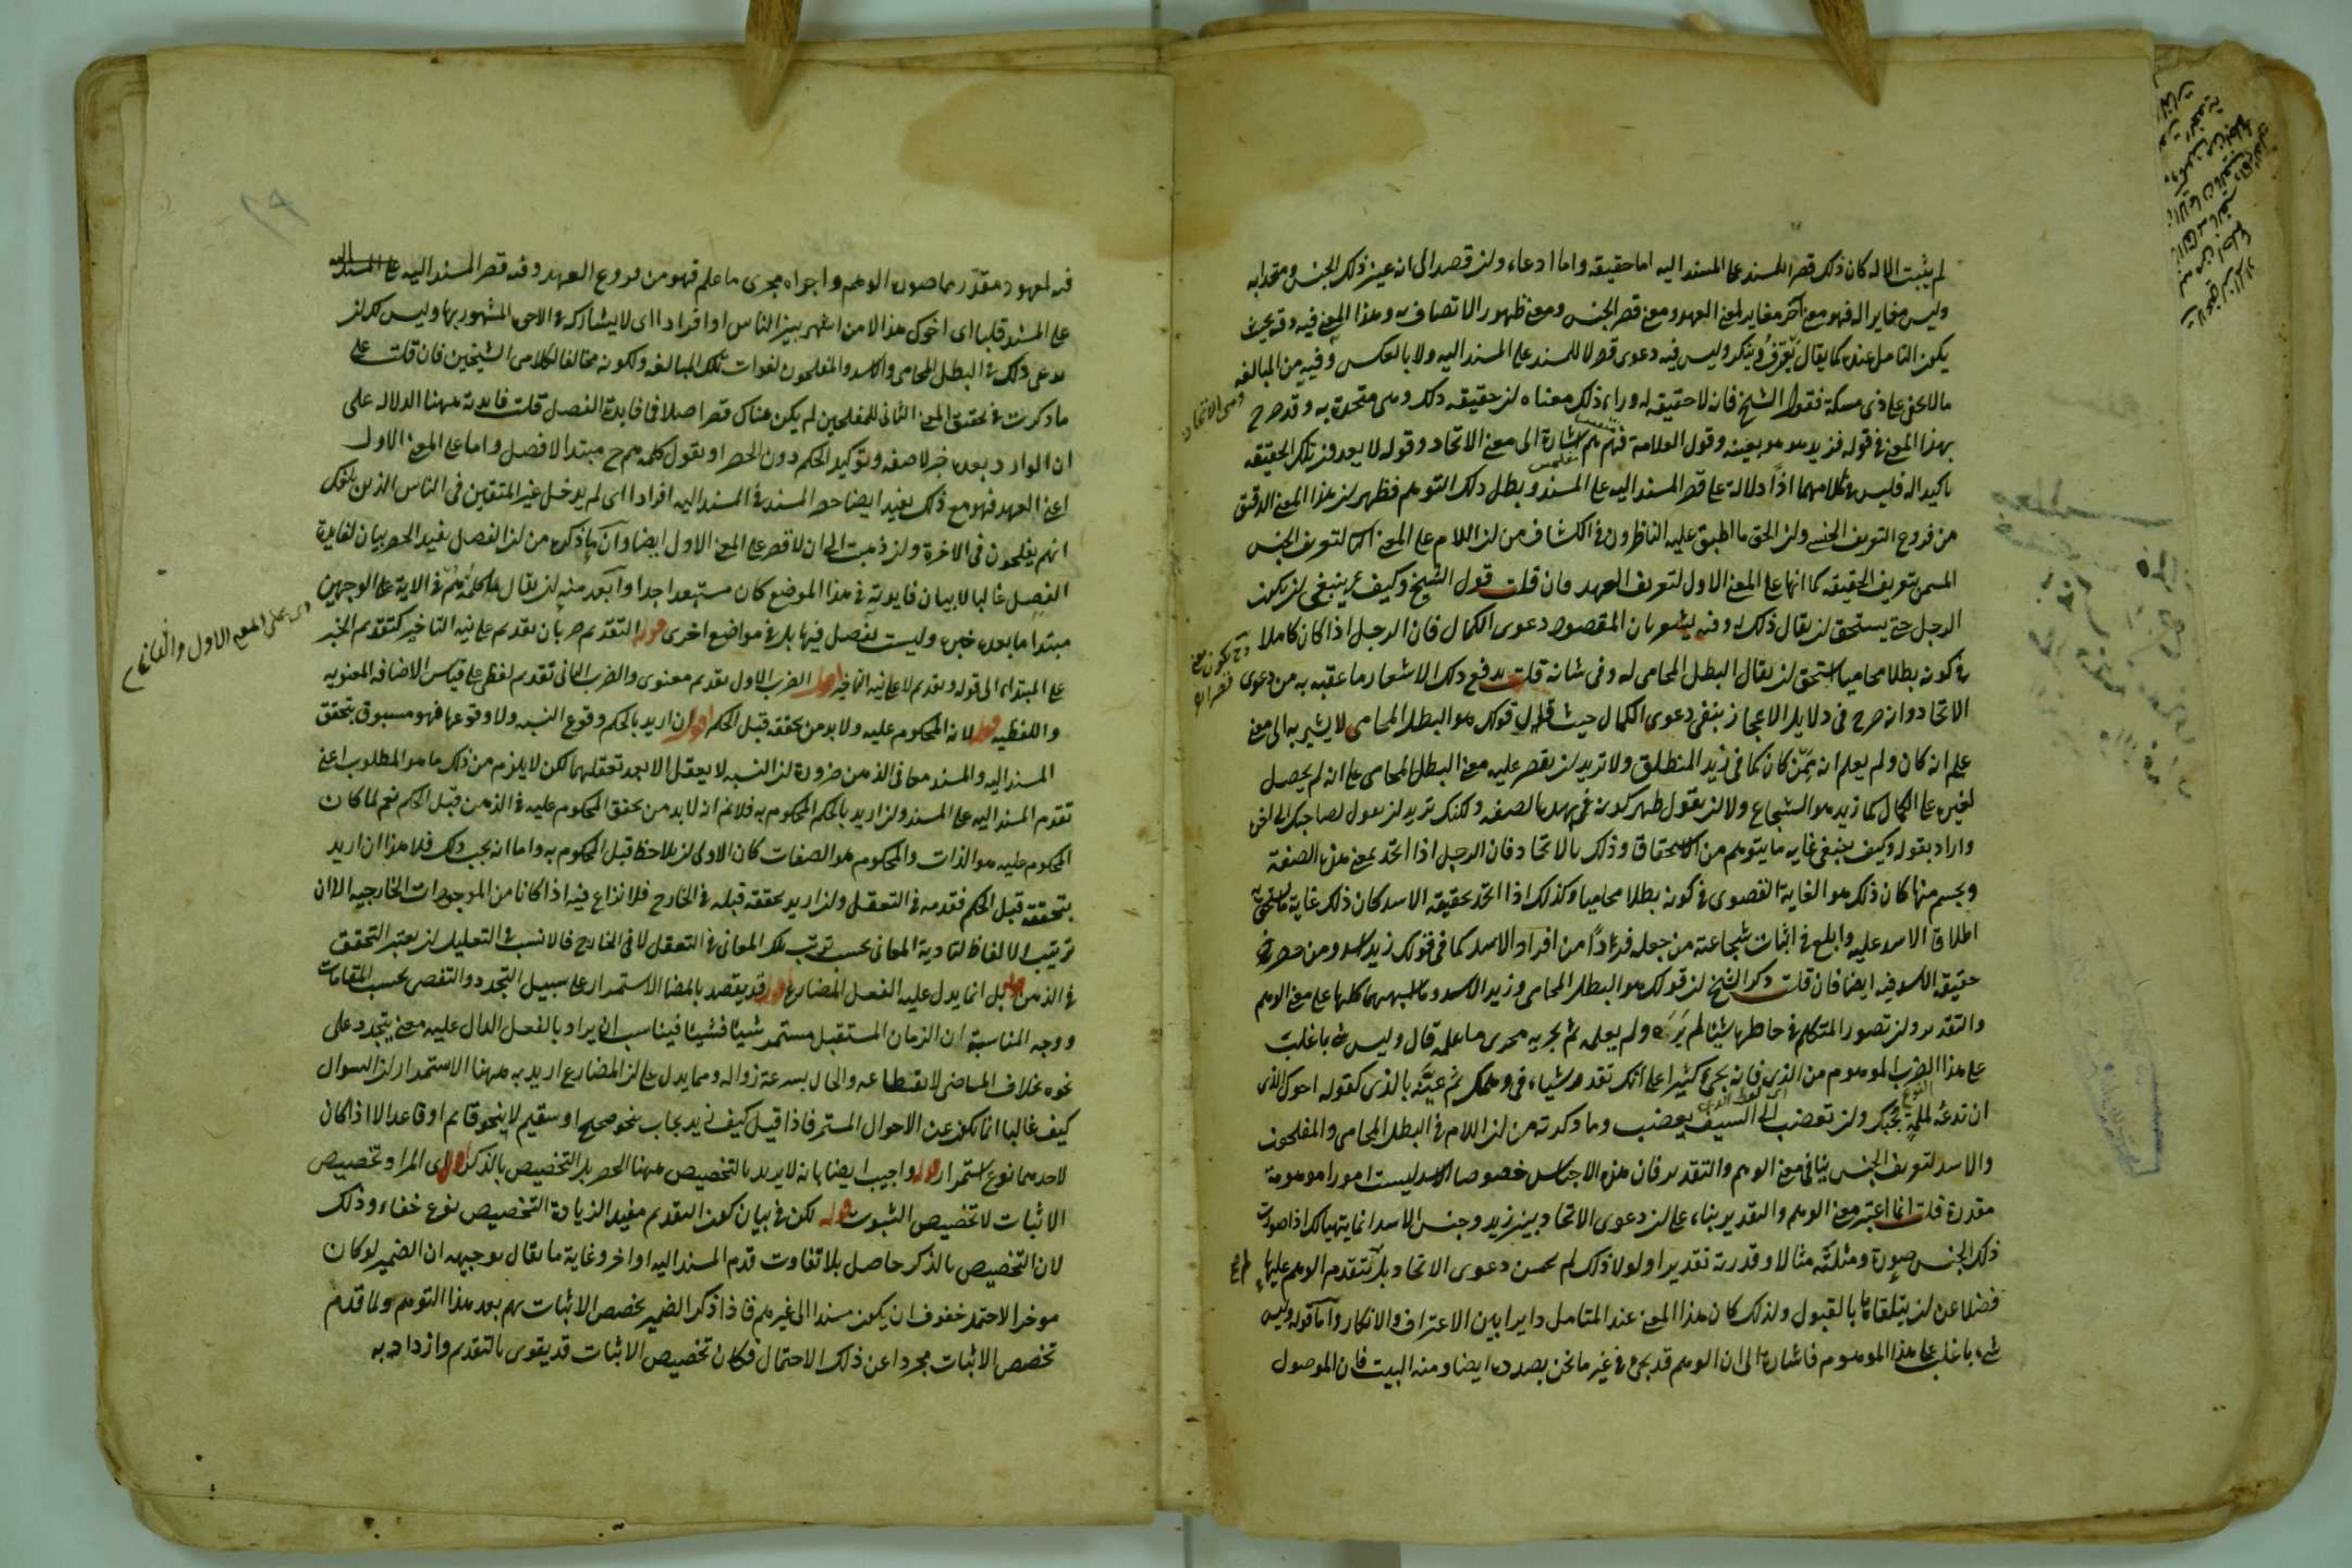 لم يثبت الا له كان ذلك قصر المسند على المسند اليه اما حقيقه واما ادعاء ولن قصد الى انه عين ذلك الجنس ومتحد به
وليس مغايرا له فهو معنى آخر مغاير لمعنى العهد ومعنى قصر الجنس ومعنى ظهور الاتصاف به وهذا المعنى فيه دقه بحيث
يكون التامل عنده كما يقال يعرف وينكر وليس فيه دعوى قصر لا للمسند على المسند اليه ولا بالعكس وفيه من المبالغه
مالا يخفى على ذى مسكة فقول الشيخ فانه لا حقيقه له وراء ذلك معناه لن حقيقه ذلك وهى متحدة به وقد صرح
بهذا المعنى فى قوله فزيد هو هو بعينه وقول العلامة فهم هم اشارة الى معنى الاتحاد وقوله لا يعدون تلك الحقيقه
تاكيد له فليس فى كلامهما اذا دلالة على قصر المسند اليه على المسند وبطل ذلك التوهم فظهر لن هذا المعنى الدقيق
من فروع التعريف الجنسى ولن الحق ما اطبق عليه الناظرون فى الكشاف من لن اللام على المعنى الثانى لتعريف الجنس
المسمى بتعريف الحقيقه كما انها على المعنى الاول لتعريف العهد فان قلت قول الشيخ وكيف ينبغى لن يكون
الرجل حتى يستحق لن يقال ذلك له وفيه يشعر بان المقصود دعوى الكمال فان الرجل اذا كان كاملا
فى كونه بطلا محاميا استحق لن يقال البطل المحامى له وفى شانه قلت يدفع ذلك الاشعار ما عقبه به من دعوى
الاتحاد وانه صرح فى دلايل الاعجاز بنفى دعوى الكمال حيث قال قولك هو البطل المحامى لا يشير به الى معنى
علم انه كان ولم يعلم انه ممن كان كما فى زيد المنطلق ولا تريد لن يقصر عليه معنى البطل المحامى على انه لم يحصل
لغيره على الكمال كما زيد هو الشجاع ولا لن يقول ظهر كونه بهذه الصفه ولكنك تريد لن تقول لصاحبك
واراد بقوله وكيف ينبغى غاية ما يتوهم من الاستحقاق وذلك بالاتحاد فان الرجل اذا اتحد بمعنى هذه الصفة
وتجسم منها كان ذلك هو الغاية القصوى فى كونه بطلا محاميا وكذلك اذا اتحد بحقيقه الاسد كان ذلك غاية
اطلاق الاسد عليه وابلغ فى اثبات شجاعته من جعله فردا من افراد الاسد كما فى قولك زيد اسد ومن حصر
حقيقه الاسد فيه ايضا فان قلت ذكر الشيخ لن قولك هو البطل المحامى وزيد الاسد وما اشبههما كلها على معنى الوهم
والتقدير ولن تصور المتكلم فى خاطره شيئا لم يره ولم يعلمه ثم يجريه مجرى ما علمه قال وليس شئ باغلب
على هذا الضرب الموهوم من الذى فانه يجئ كثيرا على انك تقدر شيئا فى وهمك ثم عبته بالذى كقوله اخوك الذى
ان تدعه لملمة يجبك ولن تغضب الى السيف يغضب وما ذكرته من لن اللام فى البطل المحامى والمفلحون
والاسد لتعريف الجنس ينافى معنى الوهم والتقدير فان هذه الاجناس خصوصا الاسد ليست امورا موهومة
مقدرة قلت انما اعتبر معنى الوهم والتقدير بناء على لن دعوى الاتحاد بين زيد وجنس الاسد انما يتهيا لك اذا صورت
ذلك الجنس صورة ومثلته مثالا وقدرته تقديرا ولولا ذلك لم يحسن دعوى الاتحاد بل يتقدم الوهم عليها
فضلا عن لن يتلقاها بالقبول ولذلك كان هذا المعنى عند المتامل دايرا بين الاعتراف والانكار واما قوله وليس
شئ باغلب على هذا الموهوم فاشارة الى ان الوهم قد يجئ فى غير ما نحن بصدده ايضا ومنه البيت فان الموصول
فيه لمعهود مقدر مما صوره الوهم واجراه مجرى ما علم فهو من فروع العهد وفيه قصر المسند اليه
على المسند قلبا اى اخوك هذا لا من اشهر بين الناس او افرادا اى لا يشاركه فى الاخوة المشهور بها وليس لك لن
تدعى ذلك فى البطل المحامى والاسد والمفلحون لفوات تلك المبالغه ولكونه مخالفا لكلامى الشيخين فان قلت على
ما ذكرت فى تحقيق المعنى الثانى للمفلحين لم يكن هناك قصر اصلا فما فايدة الفصل قلت فايدته ههنا الدلاله على
ان الوارد بعده خبر لا صفه وتوكيد الحكم دون الحصر او نقول كلمه هم ح مبتدا لا فصل واما على المعنى الاول
اعنى العهد فهو مع ذلك يفيد ايضا حصر المسند فى المسند اليه افرادا اى لم يدخل غير المتقين فى الناس الذين بلغك
انهم يفلحون فى الاخرة ولن ذهبت الى ان لا قصر على المعنى الاول ايضا وان ما ذكره من لن الفصل يفيد الحصر بيان لفايدة
الفصل غالبا لا بيان فايدته فى هذا الموضع كان مستبعدا جدا وابعد منه لن يقال كلمة هم فى الاية على الوجهين
مبتدا ما بعده خبره وليست بفصل فيها بل فى مواضع اخرى قوله التقديم ضربان تقديم على نيه التاخير كتقديم الخبر
على المبتداء الى قوله وتقديم لا على نيه التاخير اقول الضرب الاول تقديم معنوى والضرب الثانى تقديم لفظى على قياس الاضافه المعنويه
واللفظيه قوله لانه المحكوم عليه ولا بد من تحققه قبل الحكم اقول ان اريد بالحكم وقوع النسبه ولا وقوعها فهو مسبوق بتحقق
المسند اليه والمسند معا فى الذهن ضرورة لن النسبه لا يعقل الا بعد تعقلهما لكن لا يلزم من ذلك ما هو المطلوب اعنى
تقدم المسند اليه على المسند ولن اريد بالحكم المحكوم به فلا نم انه لا بد من تحقق المحكوم عليه فى الذهن قبل الحكم نعم لما كان
المحكوم عليه هو الذات والمحكوم هو الصفات كان الاولى لن يلاحظ قبل المحكوم به واما انه يجب ذلك فلا هذا ان اريد
بتحققه قبل الحكم تقدمه فى التعقل ولن اريد تحققه قبله فى الخارج فلا نزاع فيه اذا كانا من الموجودات الخارجيه الا ان
ترتيب الالفاظ لتادية المعانى بحسب ترتيب تلك المعانى فى التعقل لا فى الخارج فالانسب فى التعليل لن يعتبر التحقق
فى الذهن قوله بل انما يدل عليه الفعل المضارع اقول قد يقصد بالمضارع الاستمرار على سبيل التجدد والتقضى بحسب المقامات
ووجه المناسبة ان الزمان المستقبل مستمر شيئا فشيئا فيناسب ان يراد بالفعل الدال عليه معنى يتجدد على
نحوه بخلاف الماضى لانقطاعه والحال بسرعة زواله ومما يدل على لن المضارع اريد به ههنا الاستمرار لن السوال
كيف غالبا انما يكون عن الاحوال المستمرة فاذا قيل كيف زيد يجاب بنحو صحيح او سقيم لا بنحو قايم او قاعد الا اذا كان
لاحدهما نوع استمرار قوله واجيب ايضا بانه لا يريد بالتخصيص ههنا الحصر بل التخصيص بالذكر اقول اى المراد تخصيص
الاثبات لا تخصيص الثبوت قوله لكن فى بيان كون التقديم مفيدا لزيادة التخصيص نوع خفاء وذلك
لان التخصيص بالذكر حاصل بلا تفاوت قدم المسند اليه او اخر وغاية ما يقال فى توجيهه ان الضمير لو كان
موخرا لاحتمل خفوف ان يكون مسندا الى غيرهم فاذا ذكر الضمير تخصص الاثبات بهم بعد هذا التوهم ولما قدم
تخصص الاثبات مجردا عن ذلك الاحتمال فكان تخصيص الاثبات قد يقوى بالتقديم وازداد به